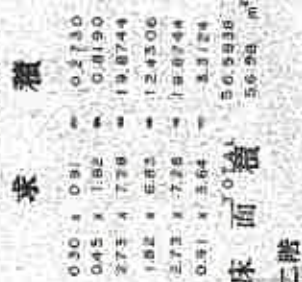 求 積
0.30 x 0.91 = 0.2730
0.45 x 1.82 = 0.8190
2.73 x 7.28 = 19.8744
1.82 x 6.83 = 12.4306
2.73 x 7.28 = 19.8744
0.91 x 3.64 = 3.3124
TOTAL 56.5838
床面積 56.58 m²
二階